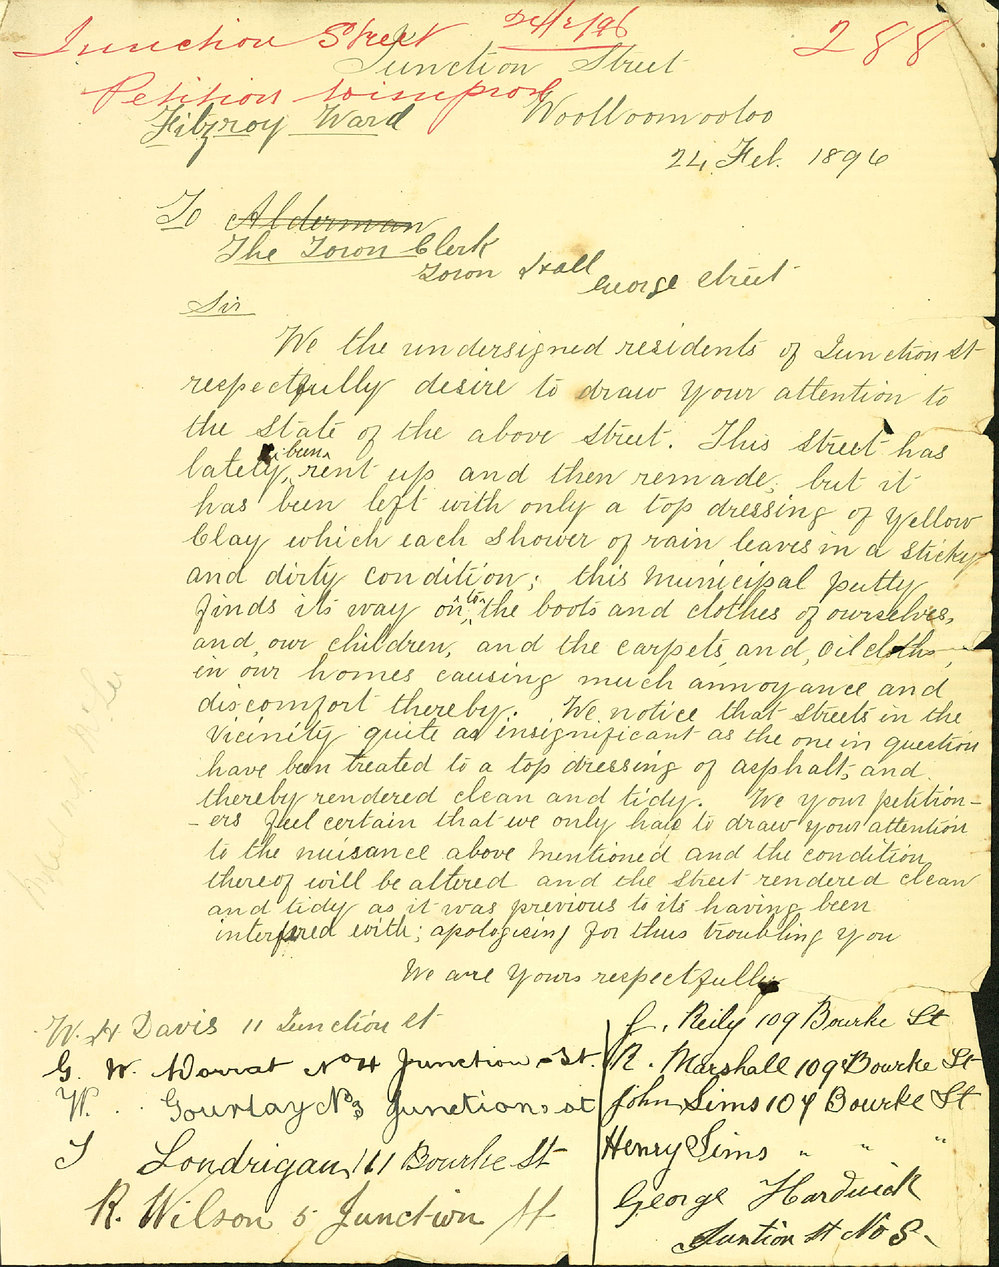 Junction Street 24/2/96 288
Junction Street
Petition to improve
Fitzroy Ward Woolloomooloo
24 Feb. 1896
To Alderman
The Town Clerk
Town Hall
George Street
Sir
We the undersigned residents of Junction St
respectfully desire to draw your attention to
the state of the above street. This street has
lately, been rent up and then remade; but it
has been left with only a top dressing of Yellow
Clay which each shower of rain leaves in a sticky
and dirty condition; this municipal putty
finds its way on to the boots and clothes of ourselves,
and, our children, and the carpets, and, oil cloths,
in our homes causing much annoyance and
discomfort thereby. We notice that streets in the
vicinity quite as insignificant as the one in question
have been treated to a top dressing of asphalt, and
thereby rendered clean and tidy. We your petition-
-ers feel certain that we only had to draw your attention
to the nuisance above mentioned and the condition
thereof will be altered and the street rendered clean
and tidy as it was previous to its having been
interfered with; apologising for thus troubling you
We are yours respectfully
W. H Davis 11 Junction st
G. W. Warrat No 4 Junction St.
W. Gourlay No 3 Junction st
T Londrigan 111 Bourke St
R. Wilson 5 Junction St
J. Reily 109 Bourke St
R. Marshall 109 Bourke St
John Sims 107 Bourke St
Henry Sims " " "
George Hardwick
Juntion St No 8